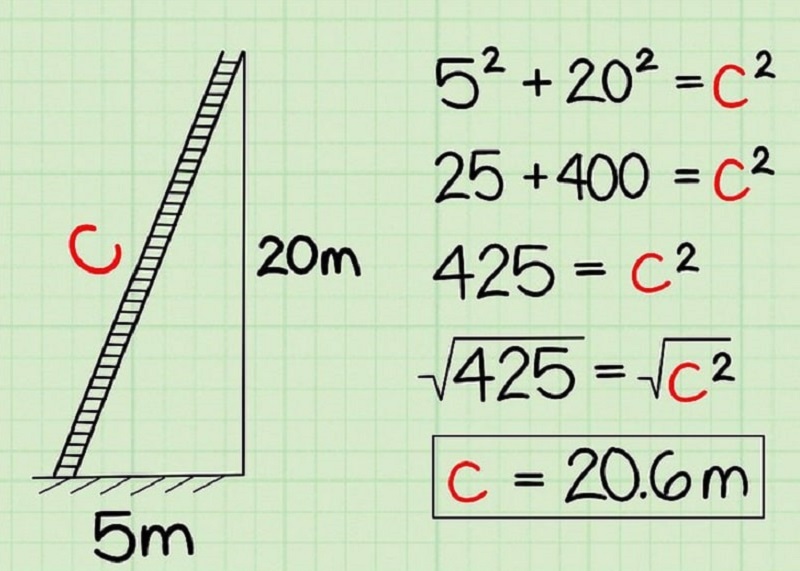 C
20m
5m
5² + 20² = c²
25 + 400 = c²
425 = c²
√425 = √c²
c = 20.6m